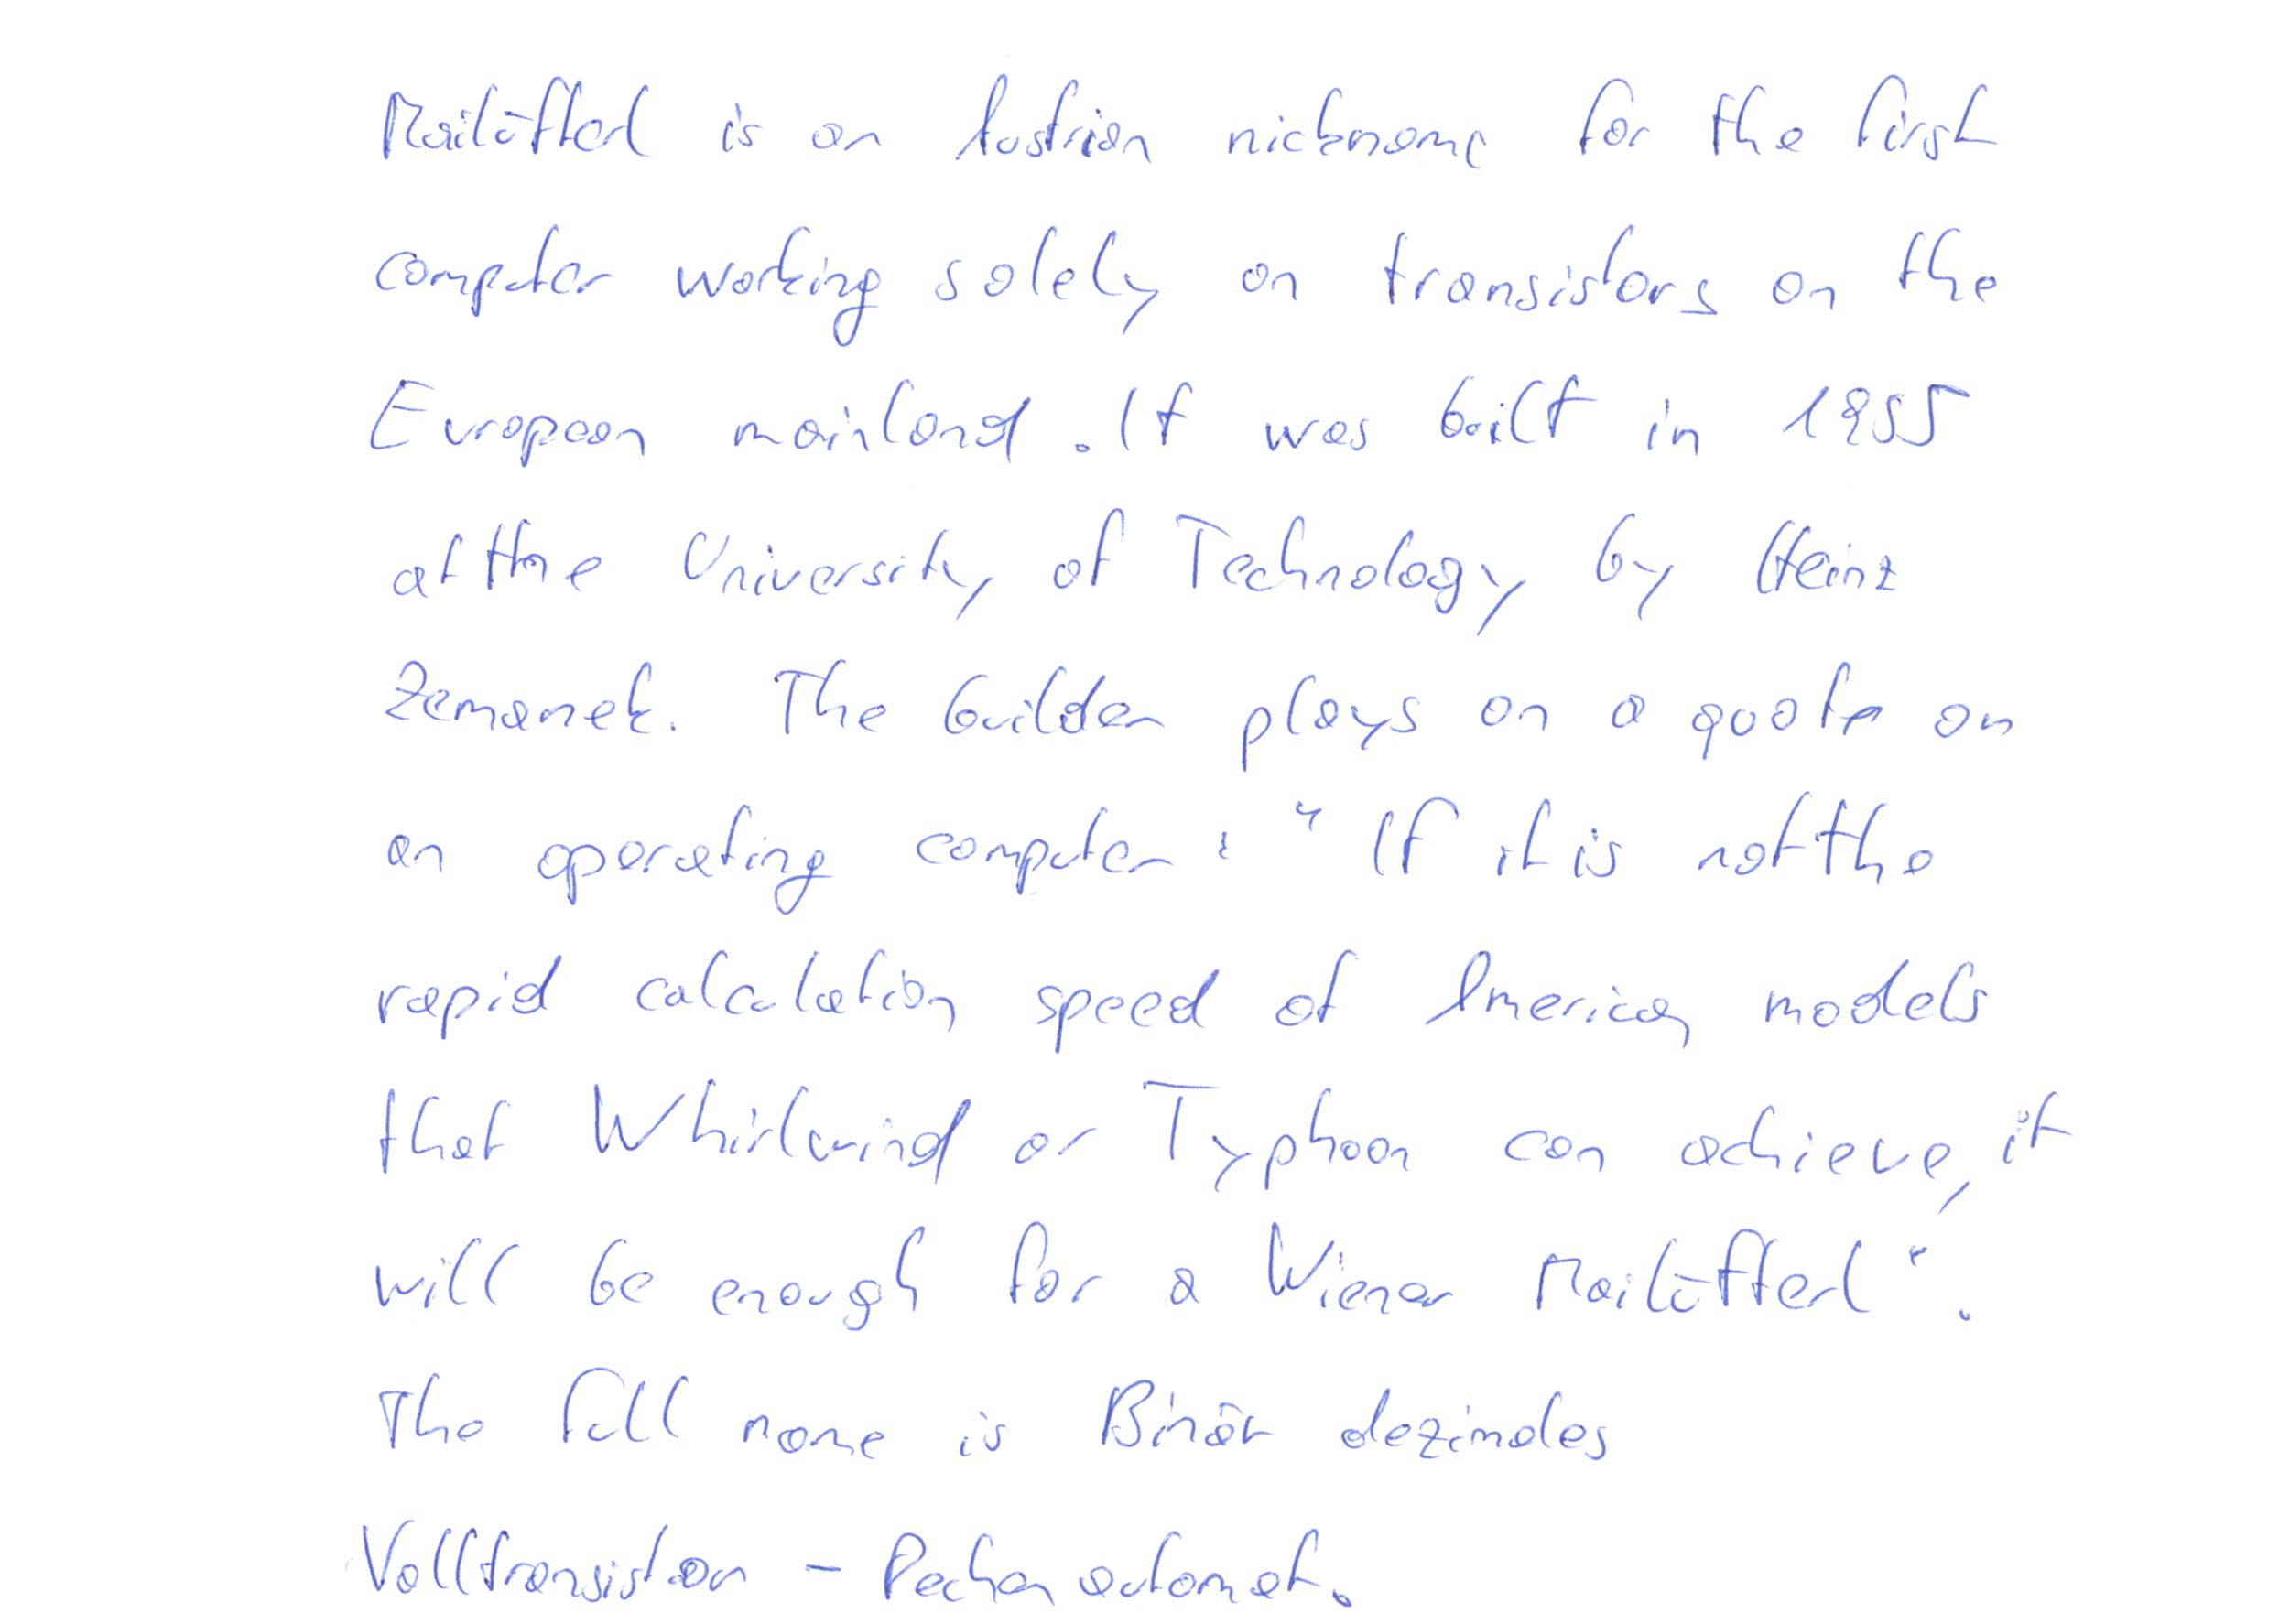 Mailüfterl is an Austrian nickname for the first
computer working solely on transistors on the
European mainland. It was built in 1955
at the University of Technology by Heinz
Zemanek. The builder plays on a quote on
an operating computer: "If it is not the
rapid calculation speed of American models
that Whirlwind or Typhoon can achieve, it
will be enough for a Wiener Mailüfterl".
The full name is Binär dezimales
Volltransistor - Rechenautomat.